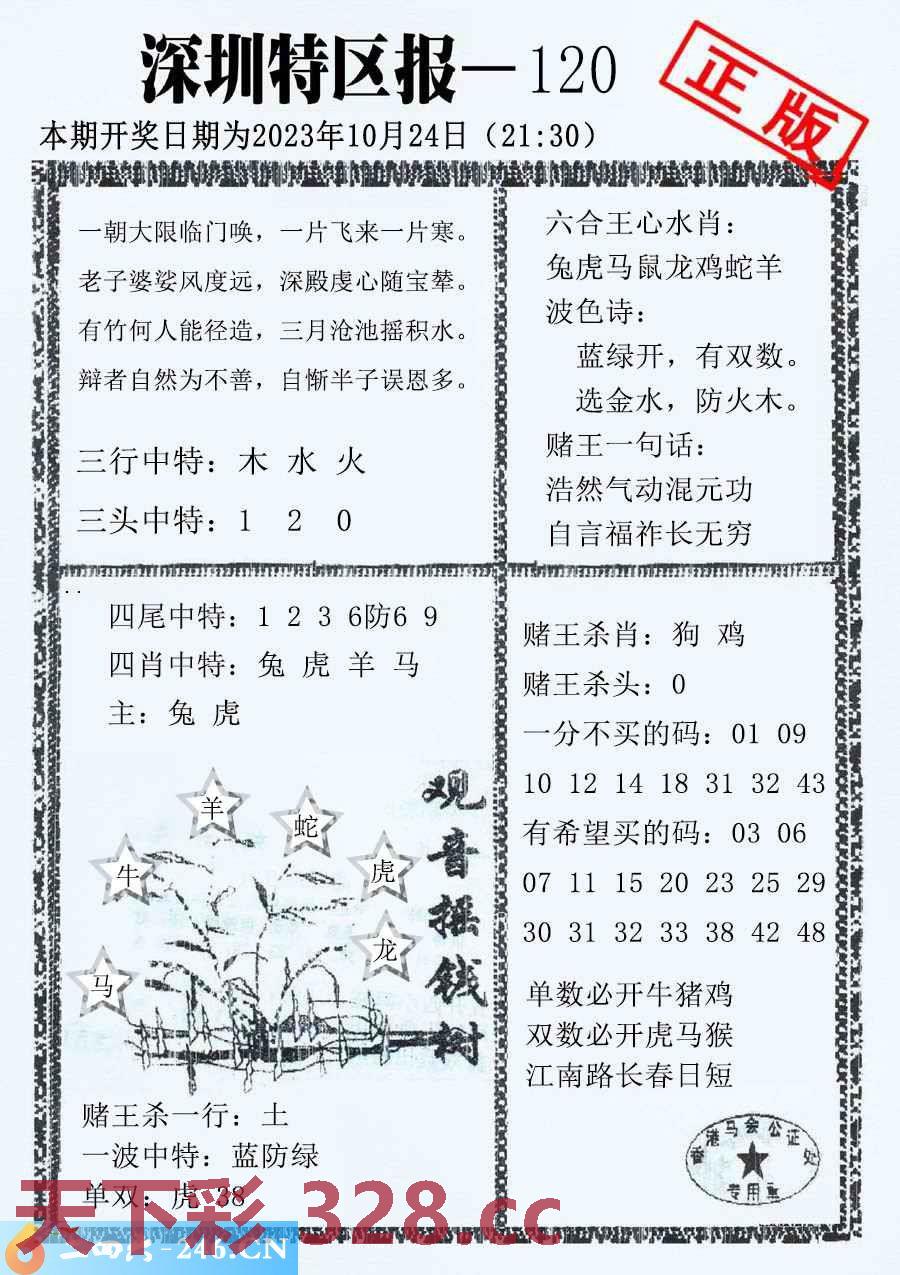 深圳特区报—120
正版
本期开奖日期为2023年10月24日（21:30）
一朝大限临门唤，一片飞来一片寒。
老子婆娑风度远，深殿虔心随宝辇。
有竹何人能径造，三月沧池摇积水。
辩者自然为不善，自惭半子误恩多。
三行中特：木 水 火
三头中特：1 2 0
六合王心水肖：
兔虎马鼠龙鸡蛇羊
波色诗：
蓝绿开，有双数。
选金水，防火木。
赌王一句话：
浩然气动混元功
自言福祚长无穷
四尾中特：1 2 3 6防6 9
四肖中特：兔 虎 羊 马
主：兔 虎
观音摇钱树
羊
蛇
牛
虎
龙
马
赌王杀一行：土
一波中特：蓝防绿
单双：虎 38
赌王杀肖：狗 鸡
赌王杀头：0
一分不买的码：01 09
10 12 14 18 31 32 43
有希望买的码：03 06
07 11 15 20 23 25 29
30 31 32 33 38 42 48
单数必开牛猪鸡
双数必开虎马猴
江南路长春日短
香港马会公证处
专用章
天下彩 328.cc
-246.CN